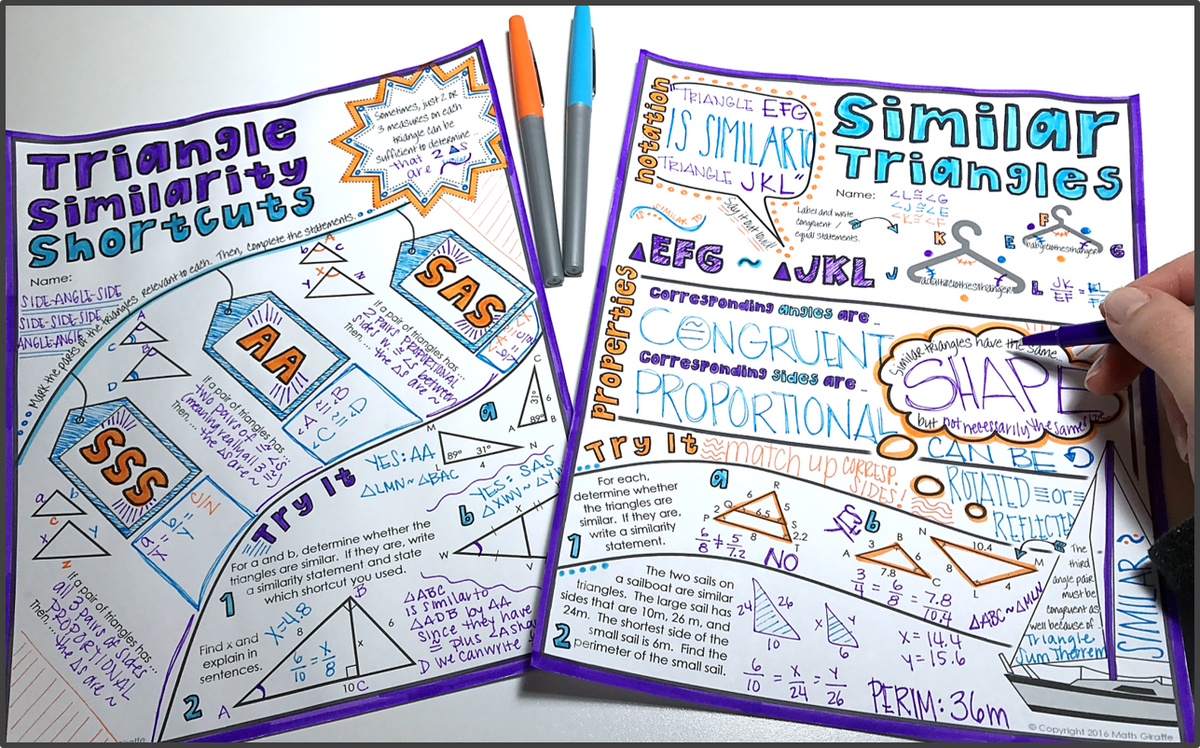 Triangle
Similarity
Shortcuts
Name:
SIDE-ANGLE-SIDE
SIDE-SIDE-SIDE
ANGLE-ANGLE
Sometimes, just 2 or
3 measures on each
triangle can be
sufficient to determine
that 2 △s
are ~
Mark the parts of the triangles relevant to each. Then, complete the statements.
SAS
If a pair of triangles has...
2 pairs of
sides w/ = PROPORTIONAL
Then,... the
△s are ~
AA
If a pair of triangles has...
two pairs of ≅ ∠s
(meaning really all 3 ∠s)
Then,... the
△s are ~
SSS
If a pair of triangles has...
all 3 pairs of sides
PROPORTIONAL
Then,... the
△s are ~
Try It
a
M
89°
31°
L
4
N
C
31°
6
8
89°
A
B
YES: AA
△LMN ~ △BAC
b
YES: SAS
W
X
V
1
For a and b, determine whether the
triangles are similar. If they are, write
a similarity statement and state
which shortcut you used.
2
Find x and
explain in
sentences.
X=4.8
6/10 = X/8
A
B
8
x
6
10
C
△ABC
is similar to
△ADB by AA
since they have
D we can write
notation
"TRIANGLE EFG
IS SIMILAR TO
TRIANGLE JKL"
Say it out loud!
SIMILAR TO
△EFG ~ △JKL
Similar
Triangles
Name:
∠L≅∠G
∠J≅∠E
∠K≅∠F
Label and write
congruent /
equal statements.
K
J
L
F
E
G
properties
Corresponding angles are _
CONGRUENT
Corresponding sides are _
PROPORTIONAL
Similar triangles have the same...
SHAPE
but not necessarily the same size
CAN BE
ROTATED or
REFLECTED
Try It
match up CORRESP.
SIDES!
1
For each,
determine whether
the triangles are
similar. If they are,
write a similarity
statement.
a
R
6
5
Q
S
2
6.5
2.2
P
8
T
6/8 ≠ 5/7.2
NO
YES
b
B
3
6
A
7.8
C
N
10.4
8
M
4
L
3/4 = 6/8 = 7.8/10.4
△ABC ~ △MLN
The
third
angle pair
must be
congruent as
well because of
Triangle
Sum Theorem
SIMILAR ~
2
The two sails on
a sailboat are similar
triangles. The large sail has
sides that are 10m, 26 m, and
24m. The shortest side of the
small sail is 6m. Find the
perimeter of the small sail.
24
26
10
x
y
6
6/10 = X/24 = Y/26
X = 14.4
Y = 15.6
PERIM: 36m
© Copyright 2016 Math Giraffe